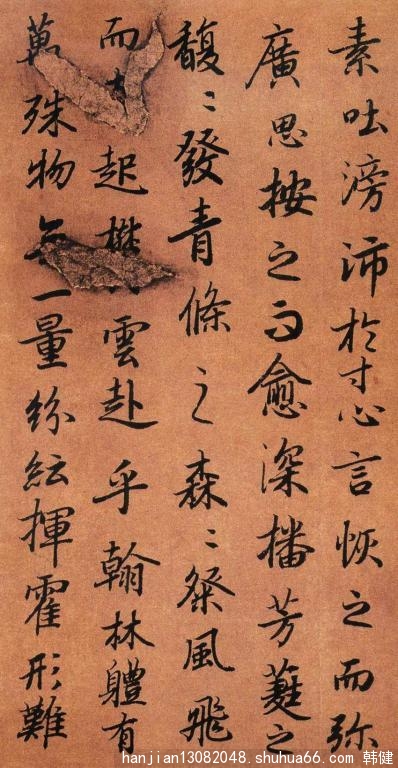 素吐滂沛於寸心言恢之而弥
廣思按之而愈深播芳蕤之
馥〻發青條之森〻粲風飛
而 起 雲赴乎翰林軆有
萬殊物 一量紛紜揮霍形難
hanjian13082048.shuhua66.com 韩健